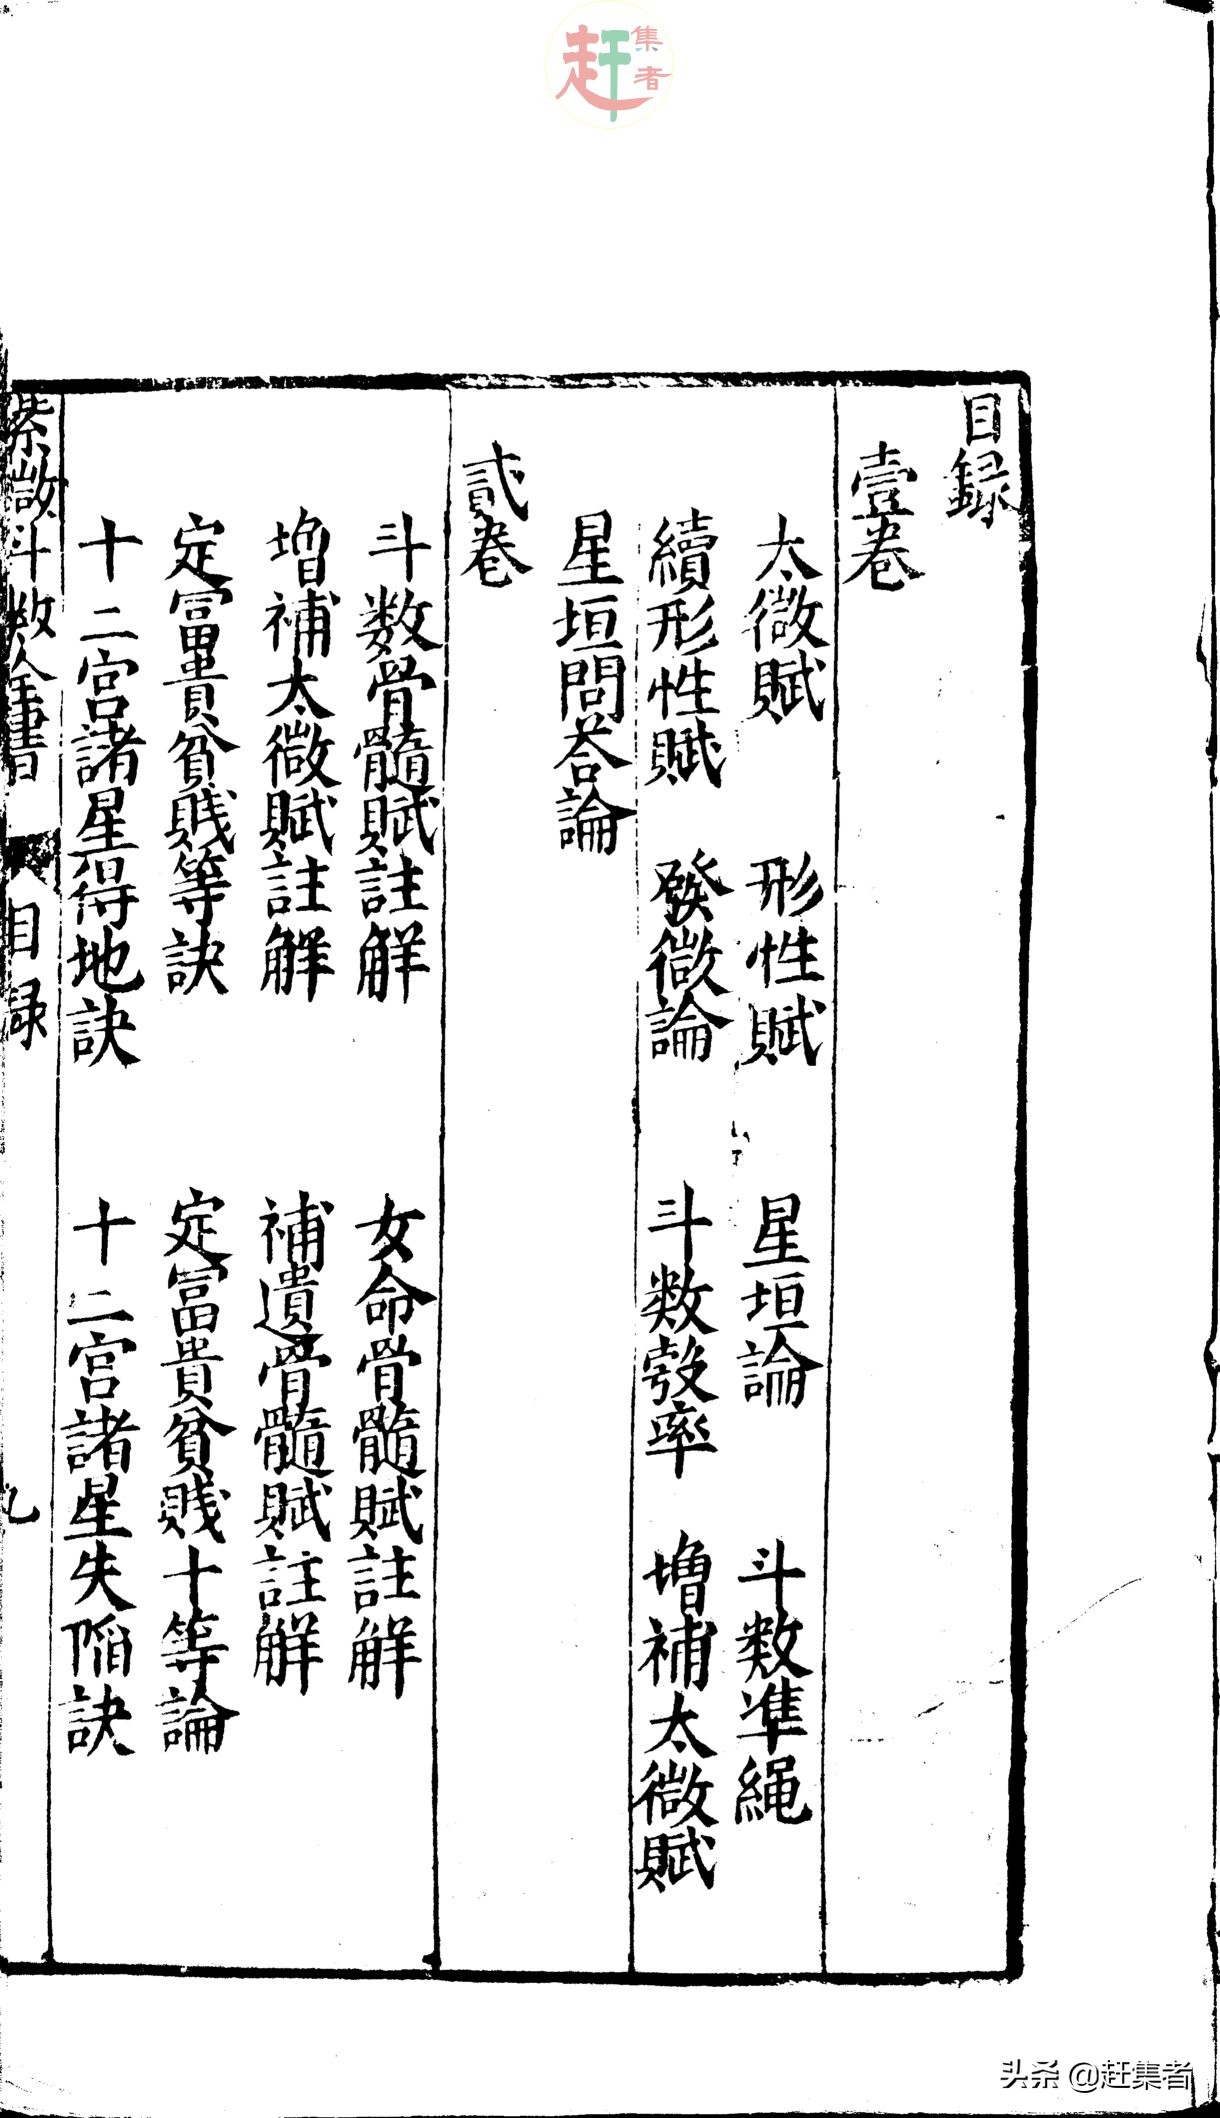 赶集者
目録
壹卷
太微賦 形性賦 星垣論 斗数準繩
續形性賦 發微論 斗数彀率 増補太微賦
星垣問荅論
貳卷
斗数骨髓賦註解 女命骨髓賦註解
増補太微賦註解 補遺骨髓賦註解
定冨貴貧賤等訣 定冨貴貧賤十等論
十二宮諸星得地訣 十二宮諸星失陥訣
紫微斗数全書 目録 九
头条 @赶集者